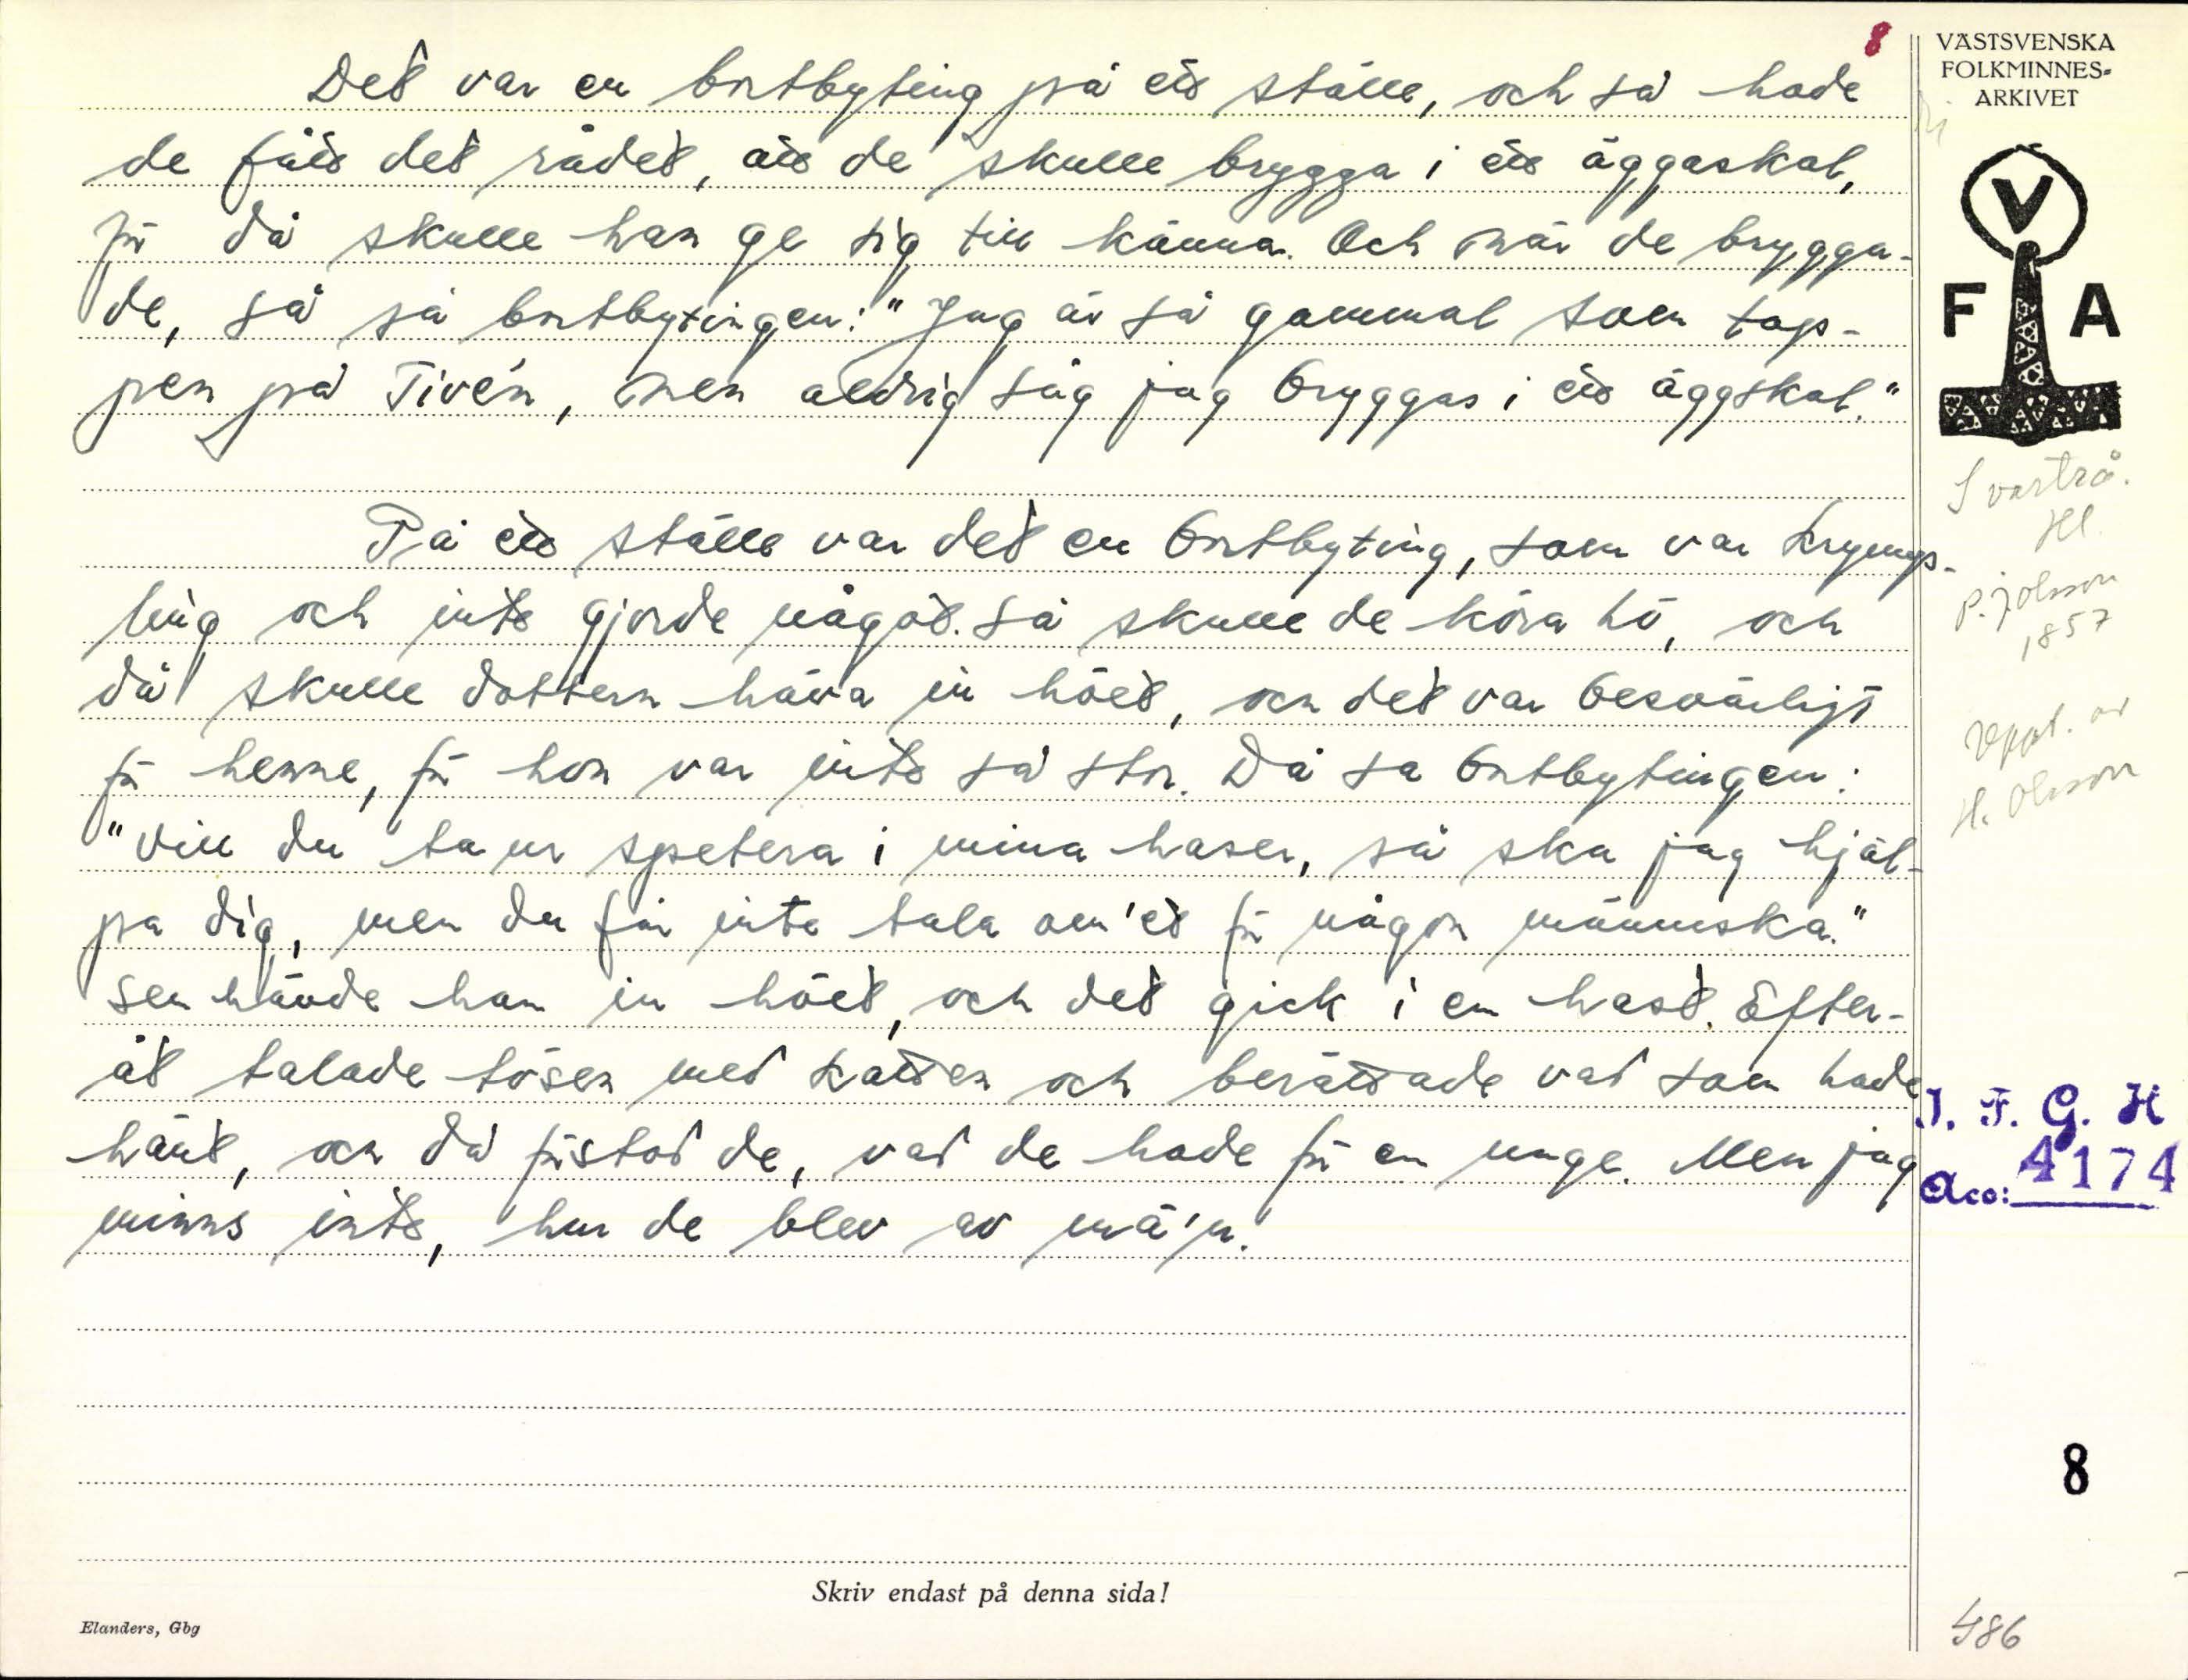 8
Det var en bortbyting på ett ställe, och så hade
de fått det rådet, att de skulle brygga i ett äggaskal,
för då skulle han ge sig till känna. Och när de brygga-
de, så sa bortbytingen: "Jag är så gammal som top-
pen på Tivén, men aldrig såg jag bryggas i ett äggskal."
På ett ställe var det en bortbyting, som var krymp-
ling och inte gjorde något. Så skulle de köra hö, och
då skulle dottern häva in höet, och det var besvärligt
för henne, för hon var inte så stor. Då sa bortbytingen:
"Vill du ta ur spetera i mina haser, så ska jag hjäl-
pa dig, men du får inte tala om'et för någon människa."
Sen hävde han in höet, och det gick i en hast. Efter-
åt talade tösen med katten och berättade vad som hade
hänt, och då förstod de, vad de hade för en unge. Men jag
minns inte, hur de blev av mä'n.
Skriv endast på denna sida!
Elanders, Gbg
VÄSTSVENSKA
FOLKMINNES-
ARKIVET
V
F A
Svartrå.
Hl.
P. J Olsson
1857
Uppt. av
H. Olsson
I. F. G. H
Acc: 4174
8
486